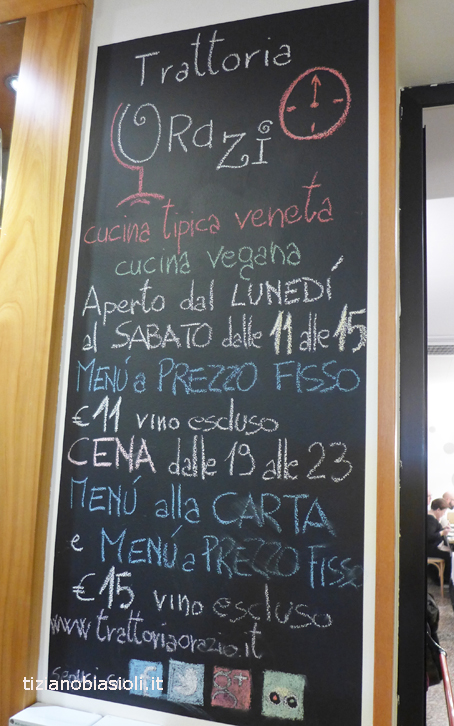 Trattoria
Orazi
cucina tipica veneta
cucina vegana
Aperto dal LUNEDÍ
al SABATO dalle 11 alle 15
MENÚ a PREZZO FISSO
€ 11 vino escluso
CENA dalle 19 alle 23
MENÚ alla CARTA
e MENÚ a PREZZO FISSO
€ 15 vino escluso
www.trattoriaorazio.it
f g+
tizianobiasioli.it